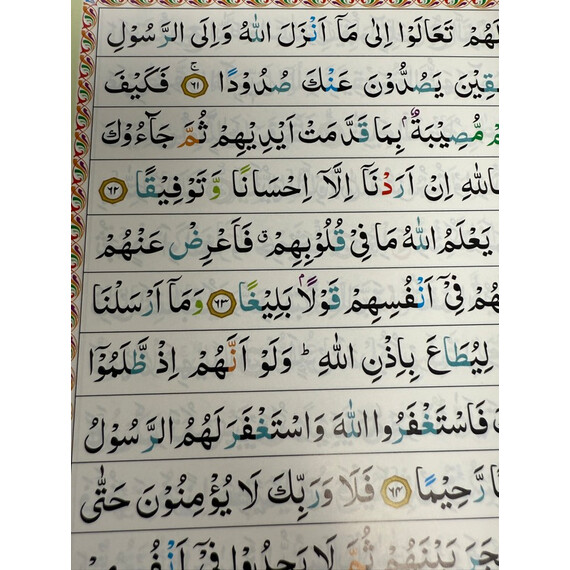 لَهُمْ تَعَالَوْا اِلٰى مَاۤ اَنْزَلَ اللّٰهُ وَاِلَى الرَّسُوْلِ
يَصُدُّوْنَ عَنْكَ صُدُوْدًا ۚ ۶۱ فَكَيْفَ
مُّصِيْبَةٌۢ بِمَا قَدَّمَتْ اَيْدِيْهِمْ ثُمَّ جَآءُوْكَ
اِنْ اَرَدْنَاۤ اِلَّاۤ اِحْسَانًا وَّتَوْفِيْقًا ۶۲
يَعْلَمُ اللّٰهُ مَا فِيْ قُلُوْبِهِمْ ۗ فَاَعْرِضْ عَنْهُمْ
فِيْۤ اَنْفُسِهِمْ قَوْلًاۢ بَلِيْغًا ۶۳ وَمَاۤ اَرْسَلْنَا
لِيُطَاعَ بِاِذْنِ اللّٰهِ ؕ وَلَوْ اَنَّهُمْ اِذْ ظَّلَمُوْۤا
فَاسْتَغْفَرُوا اللّٰهَ وَاسْتَغْفَرَ لَهُمُ الرَّسُوْلُ
رَّحِيْمًا ۶۴ فَلَا وَرَبِّكَ لَا يُؤْمِنُوْنَ حَتّٰى
بَيْنَهُمْ ثُمَّ لَا يَجِدُوْا فِيْۤ اَنْفُسِهِمْ